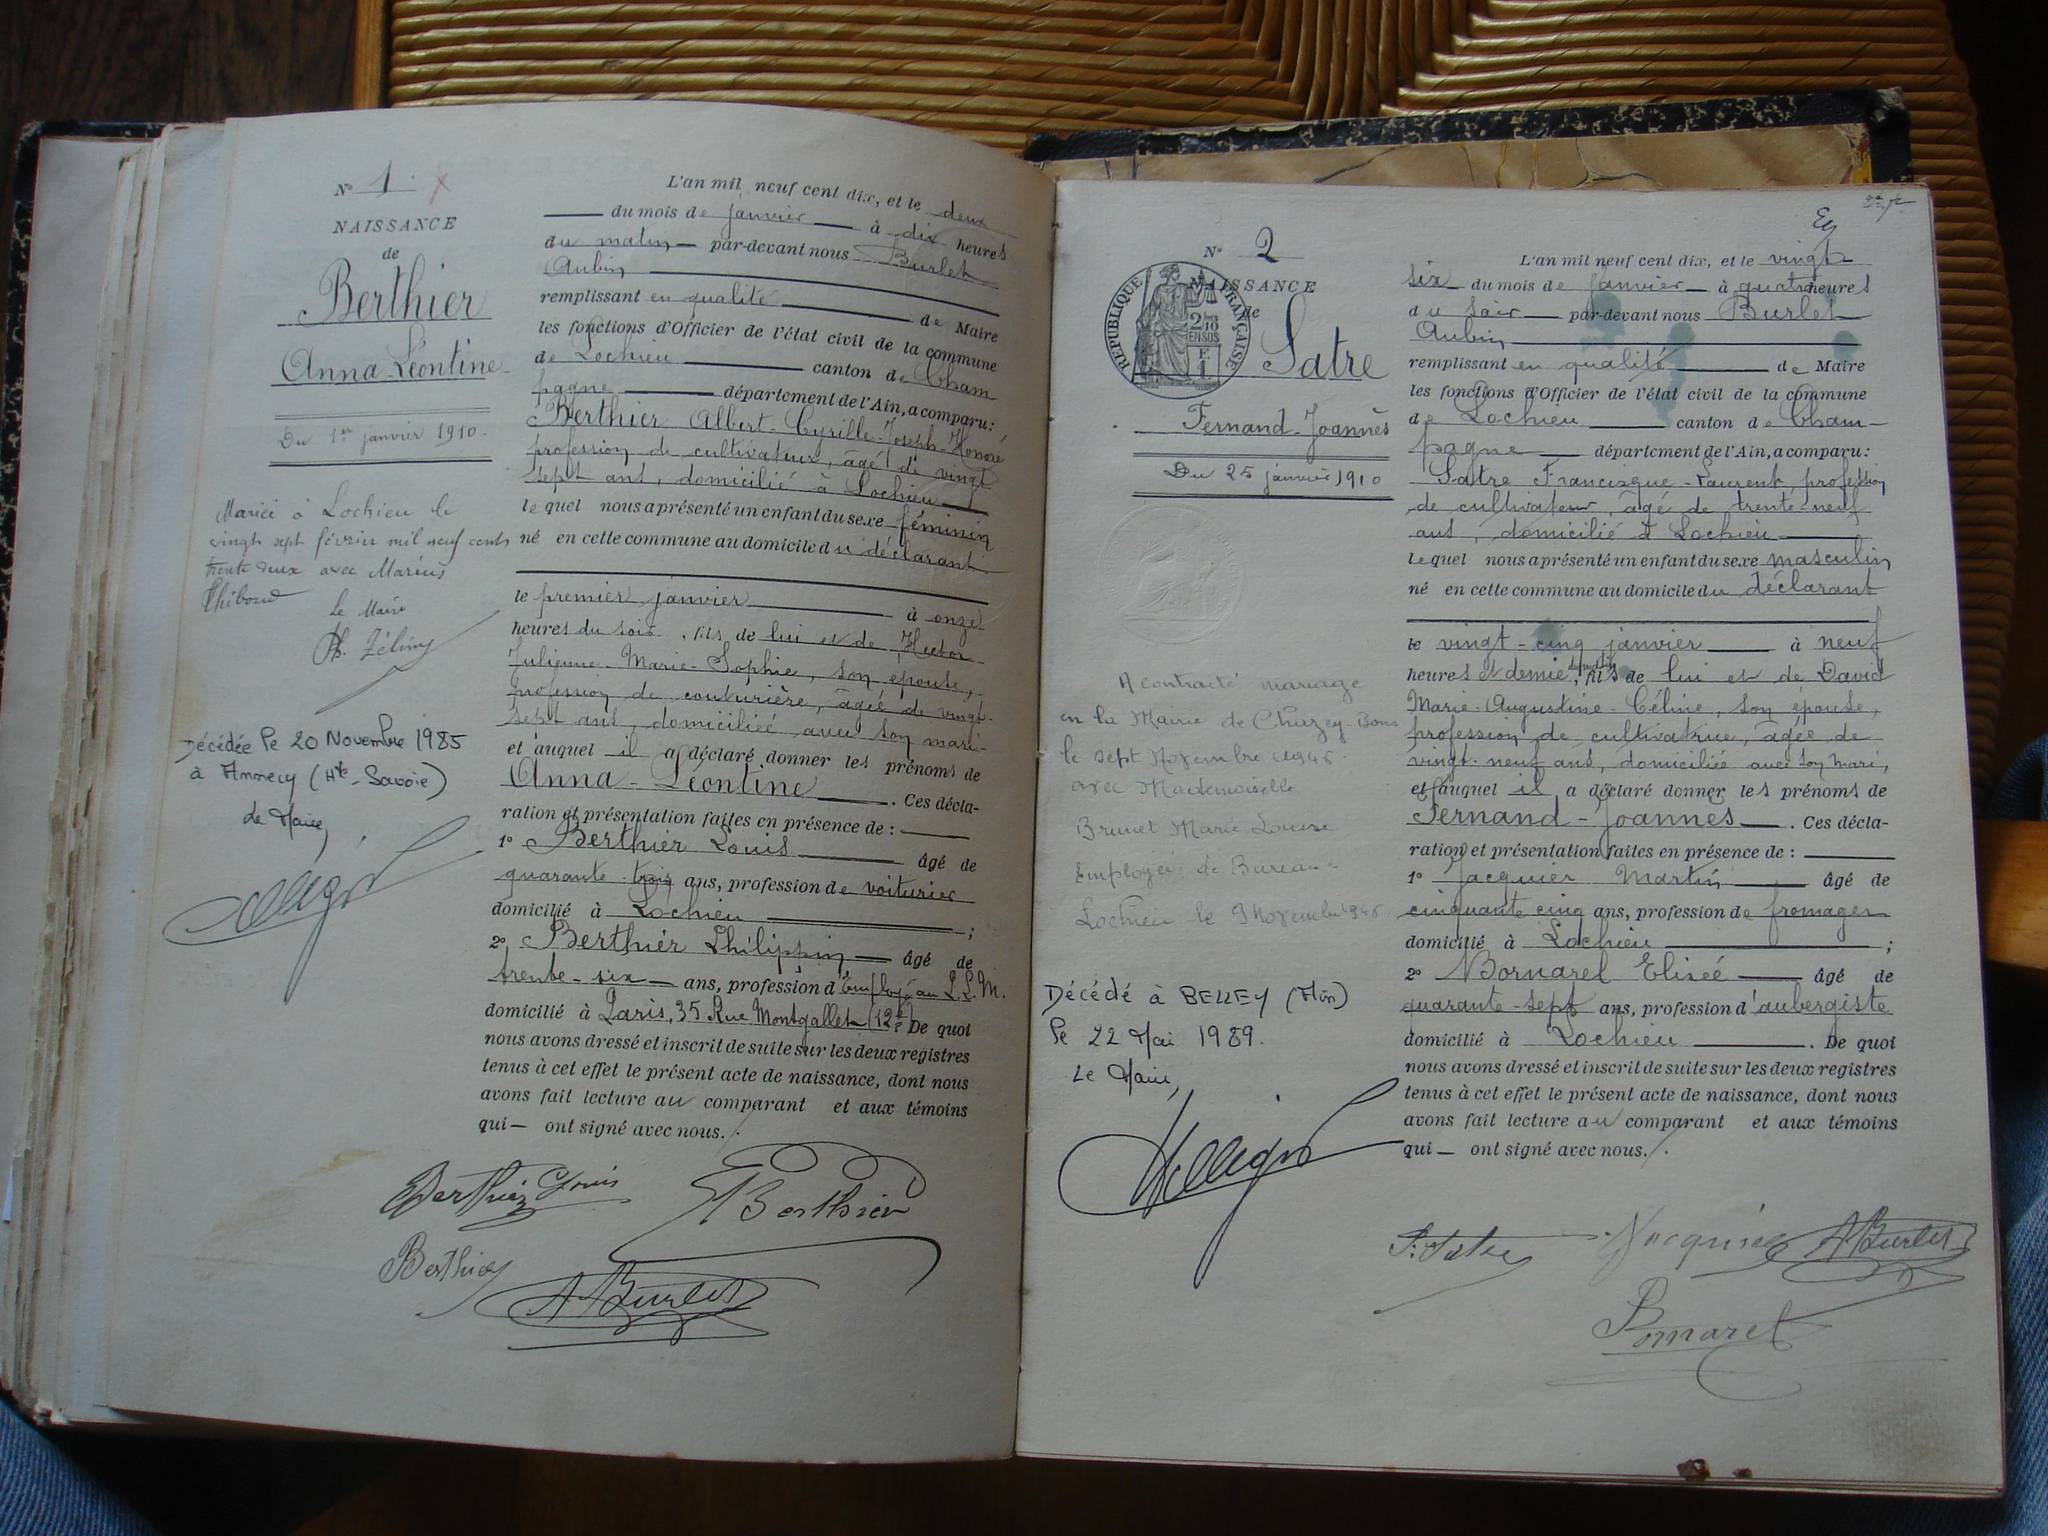 N° 1
NAISSANCE
de
Berthier
Anna-Léontine
Du 1er janvier 1910.
Mariée à Lochieu le
vingt sept février mil neuf cent
trente deux avec Marius
Thiboud
Le Maire
Décédée le 20 Novembre 1985
à Annecy (Hte-Savoie)
Le Maire,
L'an mil neuf cent dix, et le deux
du mois de janvier à dix heures
du matin par-devant nous Burlet
Aubin
remplissant en qualité de Maire
les fonctions d'Officier de l'état civil de la commune
de Lochieu canton de Cham-
pagne département de l'Ain, a comparu:
Berthier Albert-Cyrille-Joseph-Honoré
profession de cultivateur, âgé de vingt
sept ans, domicilié à Lochieu
lequel nous a présenté un enfant du sexe féminin
né en cette commune au domicile du déclarant
le premier janvier à onze
heures du soir, fils de lui et de Hector
Julienne-Marie-Sophie, son épouse,
profession de couturière, âgée de vingt-
sept ans, domiciliée avec son mari
et auquel il a déclaré donner les prénoms de
Anna-Léontine. Ces décla-
ration et présentation faites en présence de:
1° Berthier Louis âgé de
quarante-trois ans, profession de voiturier
domicilié à Lochieu;
2° Berthier Philippin âgé de
trente-six ans, profession d'Employé au P.L.M.
domicilié à Paris, 35 Rue Montgallet (12e). De quoi
nous avons dressé et inscrit de suite sur les deux registres
tenus à cet effet le présent acte de naissance, dont nous
avons fait lecture au comparant et aux témoins
qui ont signé avec nous.
Berthier Louis Berthier
Berthier
A Burlet
N° 2
NAISSANCE
de
REPUBLIQUE FRANÇAISE
2/10 EN SUS
Satre
Fernand-Joannès
Du 25 janvier 1910
A contracté mariage
en la Mairie de Chazey-Bons
le sept Novembre 1946
avec Mademoiselle
Brunet Marie Louise
Employée de Bureau
Lochieu le 9 Novembre 1946
Décédé à BELLEY (Ain)
le 22 Mai 1989.
Le Maire,
L'an mil neuf cent dix, et le vingt
six du mois de janvier à quatre heures
du soir par-devant nous Burlet
Aubin
remplissant en qualité de Maire
les fonctions d'Officier de l'état civil de la commune
de Lochieu canton de Cham-
pagne département de l'Ain, a comparu:
Satre Francisque-Laurent, profession
de cultivateur, âgé de trente-neuf
ans, domicilié à Lochieu
lequel nous a présenté un enfant du sexe masculin
né en cette commune au domicile du déclarant
le vingt-cinq janvier à neuf
heures et demie du matin, fils de lui et de David
Marie-Augustine-Céline, son épouse,
profession de cultivatrice, âgée de
vingt-neuf ans, domiciliée avec son mari,
et auquel il a déclaré donner les prénoms de
Fernand-Joannès. Ces décla-
ration et présentation faites en présence de:
1° Jacquier Martin âgé de
cinquante cinq ans, profession de fromager
domicilié à Lochieu;
2° Bornarel Elisée âgé de
quarante-sept ans, profession d'aubergiste
domicilié à Lochieu. De quoi
nous avons dressé et inscrit de suite sur les deux registres
tenus à cet effet le présent acte de naissance, dont nous
avons fait lecture au comparant et aux témoins
qui ont signé avec nous.
F. Satre Jacquier A Burlet
Bornarel